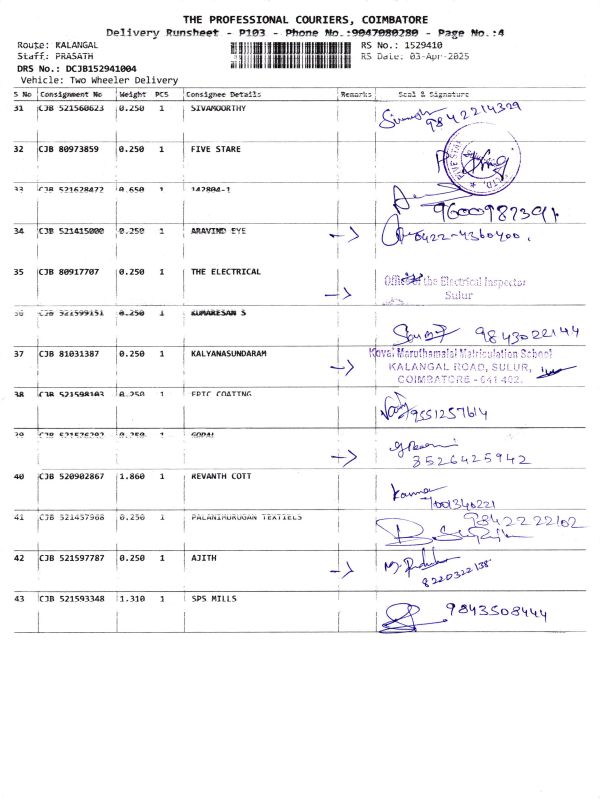 THE PROFESSIONAL COURIERS, COIMBATORE
Delivery Runsheet - P103 - Phone No.:9047080280 - Page No.:4
Route: KALANGAL RS No.: 1529410
Staff: PRASATH RS Date: 03-Apr-2025
DRS No.: DCJB152941004
Vehicle: Two Wheeler Delivery
S No Consignment No Weight PCS Consignee Details Remarks Seal & Signature
31 CJB 521560623 0.250 1 SIVAMOORTHY 9842214329
32 CJB 80973859 0.250 1 FIVE STARE
33 CJB 521628472 0.650 1 142804-1
9600987391
34 CJB 521415000 0.250 1 ARAVIND EYE 0422-4360400.
35 CJB 80917707 0.250 1 THE ELECTRICAL
Office of the Electrical Inspector
Sulur
36 CJB 521599151 0.250 1 KUMARESAN S
9843022144
37 CJB 81031387 0.250 1 KALYANASUNDARAM
Kovai Maruthamalai Matriculation School
KALANGAL ROAD, SULUR,
COIMBATORE - 641 402.
38 CJB 521598103 0.250 1 EPIC COATING
9551257614
39 CJB 521576292 0.250 1 GOPAL
8526425942
40 CJB 520902867 1.860 1 REVANTH COTT
7001340221
41 CJB 521457968 0.250 1 PALANIMURUGAN TEXTIELS 9842222102
42 CJB 521597787 0.250 1 AJITH
8220322138
43 CJB 521593348 1.310 1 SPS MILLS 9843508444